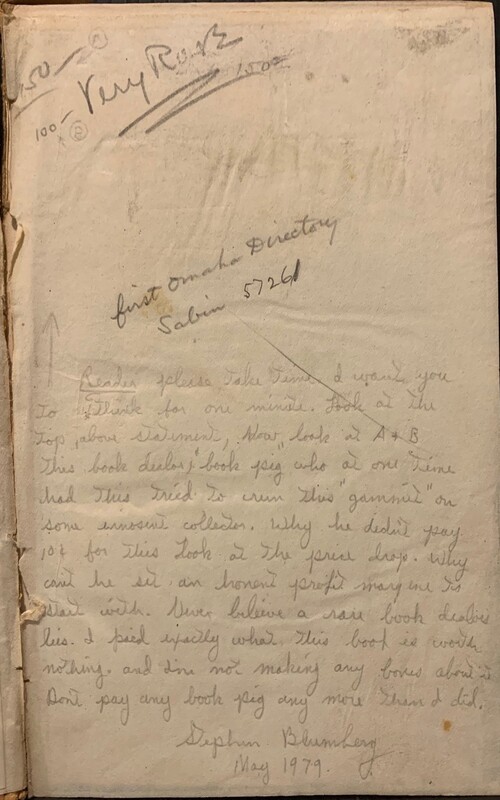 150- A
Very Rare 150-
100- B
first Omaha Directory
Sabin 57261
Reader please take time I want you
to think for one minute. Look at the
top, above statement, Now look at A & B
This book dealer, "book pig" who at one time
had this tried to crun this "gammit" on
some innosint collector. Why he didn't pay
10¢ for this Look at the price drop. Why
cant he set an honent profit margine to
start with. Never bilieve a rare book dealers
lies. I paid exactly what this book is worth
nothing. and I'm not making any bones about it
Dont pay any book pig any more then I did.
Stephen Blumberg
May 1979.